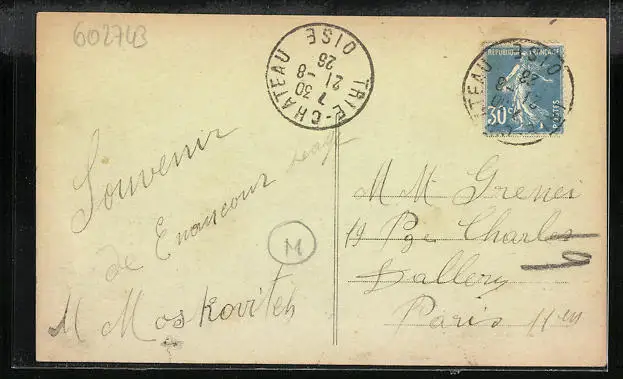 602743
TRIE-CHATEAU
OISE
7 30
21-8
26
REPUBLIQUE FRANÇAISE
30c
POSTES
Souvenir
de Enancour
M Moskovitch
M
M M Grener
19 Pge Charles
Dallery
Paris 11em